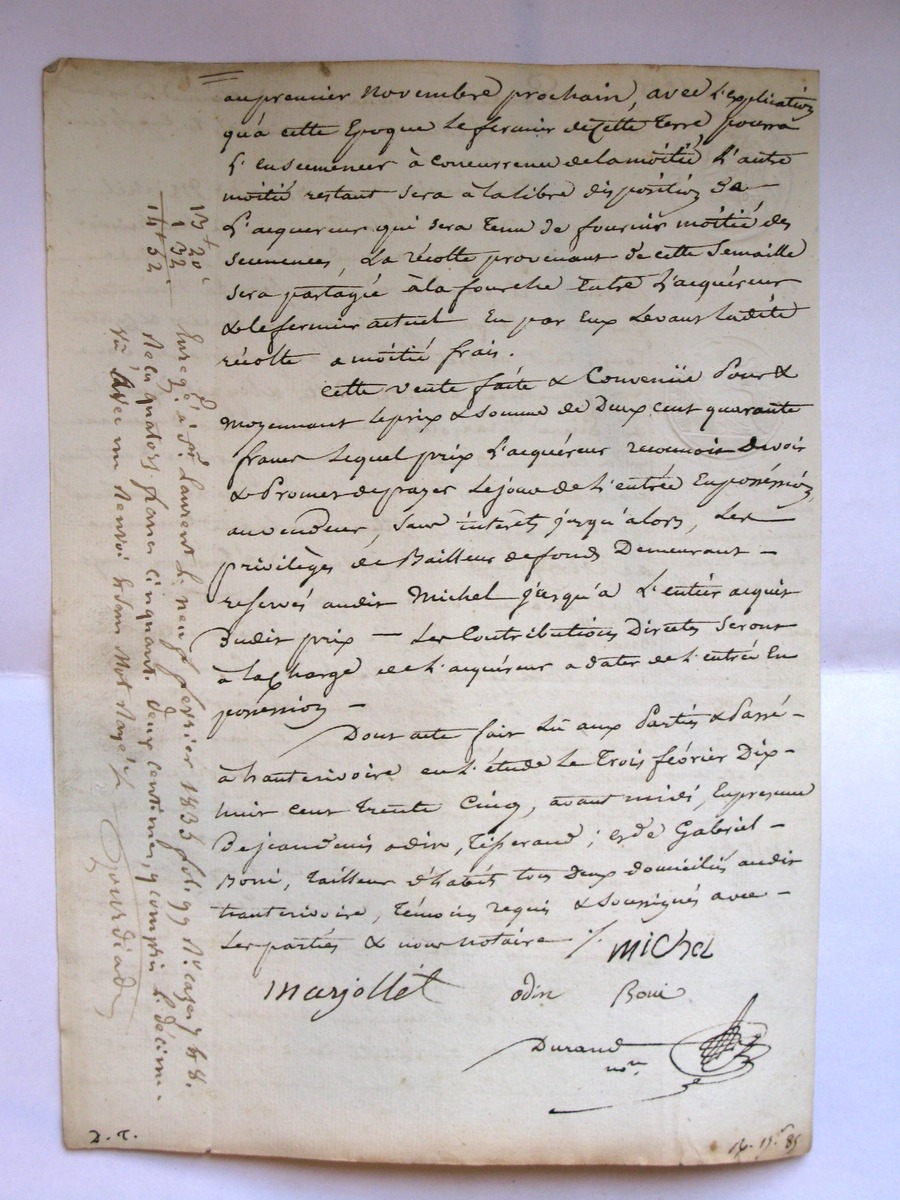 au premier Novembre prochain, avec l'explication
qu'à cette Epoque le fermier de Cette Terre, pourra
L'ensemencer à Concurrence de la moitié L'autre
moitié restant sera à la libre disposition de
L'acquereur qui sera tenu de fournir moitié des
semences, La récolte provenant de cette Semaille
sera partagée à la fourche Entre L'acquéreur
& le fermier actuel En par Eux Levant ladite
récolte a moitié frais.
Cette vente faite & Convenüe Pour &
moyennant le prix & somme de Deux cent quarante
francs lequel prix L'acquéreur reconnoit devoir
& Promet de payer Le jour de L'entrée En poséssion,
au vendeur, sans intérêts jusqu'alors, Les
privilèges de Bailleur de fonds Demeurant –
reservés audit Michel jusqu'à L'entier acquit
Dudit prix — Les Contributions Directes Seront
à la Charge de L'acquéreur a dater de L'entrée En
poséssion –
Dont acte fait Lû aux Parties & Passé –
à hauterivoire en L'étude Le Trois février Dix-
huit cent Trente Cinq, avant midi, En presence
De jean denis odin, Tisserand ; et de Gabriel –
Boni, Tailleur d'habits tous Deux domiciliés audit
hauterivoire, Témoins requis & Soussignés avec –
Les parties & nous notaire ./.
Michel
marjollet odin Boni
Durand
no.re
13 f 20 c
1 32
14 f 52 c
Enreg. à St. Laurent le neuf février 1835 fol. 99 Ro. cases 7 & 8.
Reçu quatorze francs cinquante deux centimes, y compris le décime.
D. T.